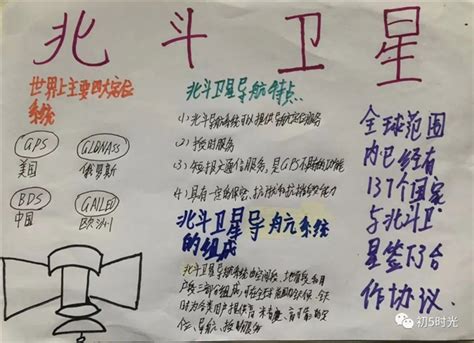 北斗卫星
世界上主要四大定位
系统
GPS
美国
GLONASS
俄罗斯
BDS
中国
GALEO
欧洲
北斗卫星导航特点
1）北斗导航系统可以提供导航定位服务
2）授时服务
3）短报文通信服务，是GPS不具备的功能
4）具有一定的保密、抗干扰和抗摧毁能力
北斗卫星导航系统
的组成
北斗卫星导航系统由空间段、地面段和用
户段三部分组成，可在全球范围内全天候、全天
时为各类用户提供高精度、高可靠的定
位、导航、授时服务
全球范围
内已经有
137个国家
与北斗卫
星签下合
作协议.
初5时光